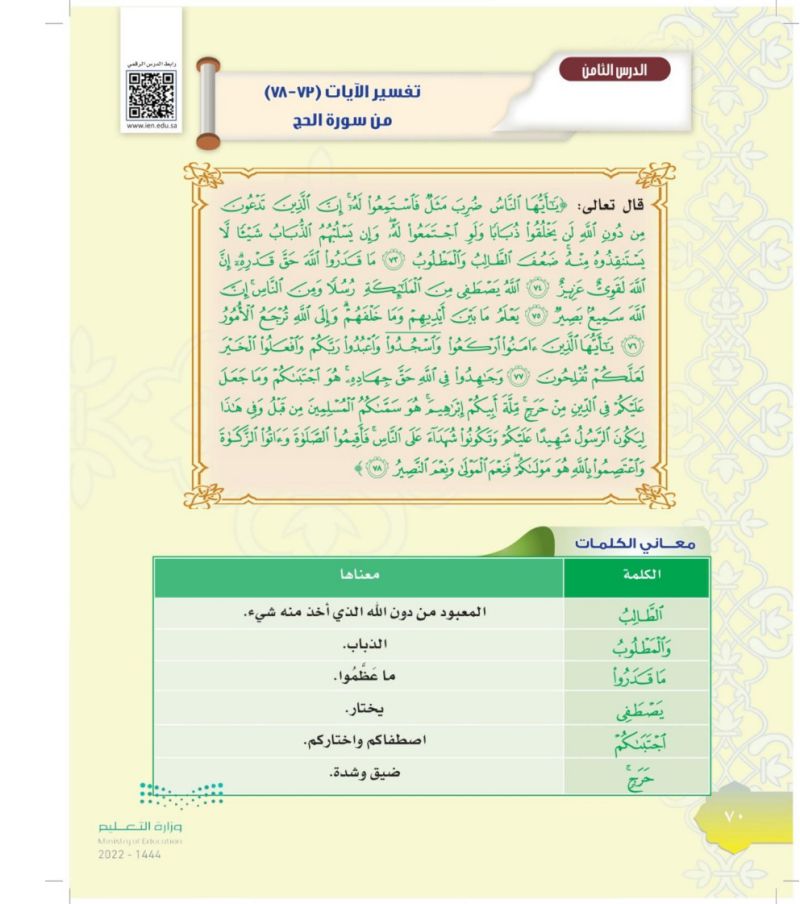 رابط الدرس الرقمي
www.ien.edu.sa
الدرس الثامن
تفسير الآيات (٧٣-٧٨)
من سورة الحج
قال تعالى: ﴿يَٰٓأَيُّهَا ٱلنَّاسُ ضُرِبَ مَثَلٞ فَٱسۡتَمِعُواْ لَهُۥٓۚ إِنَّ ٱلَّذِينَ تَدۡعُونَ
مِن دُونِ ٱللَّهِ لَن يَخۡلُقُواْ ذُبَابٗا وَلَوِ ٱجۡتَمَعُواْ لَهُۥۖ وَإِن يَسۡلُبۡهُمُ ٱلذُّبَابُ شَيۡـٔٗا لَّا
يَسۡتَنقِذُوهُ مِنۡهُۚ ضَعُفَ ٱلطَّالِبُ وَٱلۡمَطۡلُوبُ ٧٣ مَا قَدَرُواْ ٱللَّهَ حَقَّ قَدۡرِهِۦٓۚ إِنَّ
ٱللَّهَ لَقَوِيٌّ عَزِيزٌ ٧٤ ٱللَّهُ يَصۡطَفِي مِنَ ٱلۡمَلَٰٓئِكَةِ رُسُلٗا وَمِنَ ٱلنَّاسِۚ إِنَّ
ٱللَّهَ سَمِيعُۢ بَصِيرٞ ٧٥ يَعۡلَمُ مَا بَيۡنَ أَيۡدِيهِمۡ وَمَا خَلۡفَهُمۡۚ وَإِلَى ٱللَّهِ تُرۡجَعُ ٱلۡأُمُورُ
٧٦ يَٰٓأَيُّهَا ٱلَّذِينَ ءَامَنُواْ ٱرۡكَعُواْ وَٱسۡجُدُواْۤ وَٱعۡبُدُواْ رَبَّكُمۡ وَٱفۡعَلُواْ ٱلۡخَيۡرَ
لَعَلَّكُمۡ تُفۡلِحُونَ ٧٧ وَجَٰهِدُواْ فِي ٱللَّهِ حَقَّ جِهَادِهِۦۚ هُوَ ٱجۡتَبَىٰكُمۡ وَمَا جَعَلَ
عَلَيۡكُمۡ فِي ٱلدِّينِ مِنۡ حَرَجٖۚ مِّلَّةَ أَبِيكُمۡ إِبۡرَٰهِيمَۚ هُوَ سَمَّىٰكُمُ ٱلۡمُسۡلِمِينَ مِن قَبۡلُ وَفِي هَٰذَا
لِيَكُونَ ٱلرَّسُولُ شَهِيدًا عَلَيۡكُمۡ وَتَكُونُواْ شُهَدَآءَ عَلَى ٱلنَّاسِۚ فَأَقِيمُواْ ٱلصَّلَوٰةَ وَءَاتُواْ ٱلزَّكَوٰةَ
وَٱعۡتَصِمُواْ بِٱللَّهِ هُوَ مَوۡلَىٰكُمۡۖ فَنِعۡمَ ٱلۡمَوۡلَىٰ وَنِعۡمَ ٱلنَّصِيرُ ٧٨﴾
معـــاني الكلمـات
الكلمة معناها
ٱلطَّالِبُ المعبود من دون الله الذي أخذ منه شيء.
وَٱلۡمَطۡلُوبُ الذباب.
مَا قَدَرُواْ ما عَظَّمُوا.
يَصۡطَفِي يختار.
ٱجۡتَبَىٰكُمۡ اصطفاكم واختاركم.
حَرَجٖۚ ضيق وشدة.
وزارة التعـــليم
Ministry of Education
2022 - 1444
٧٠